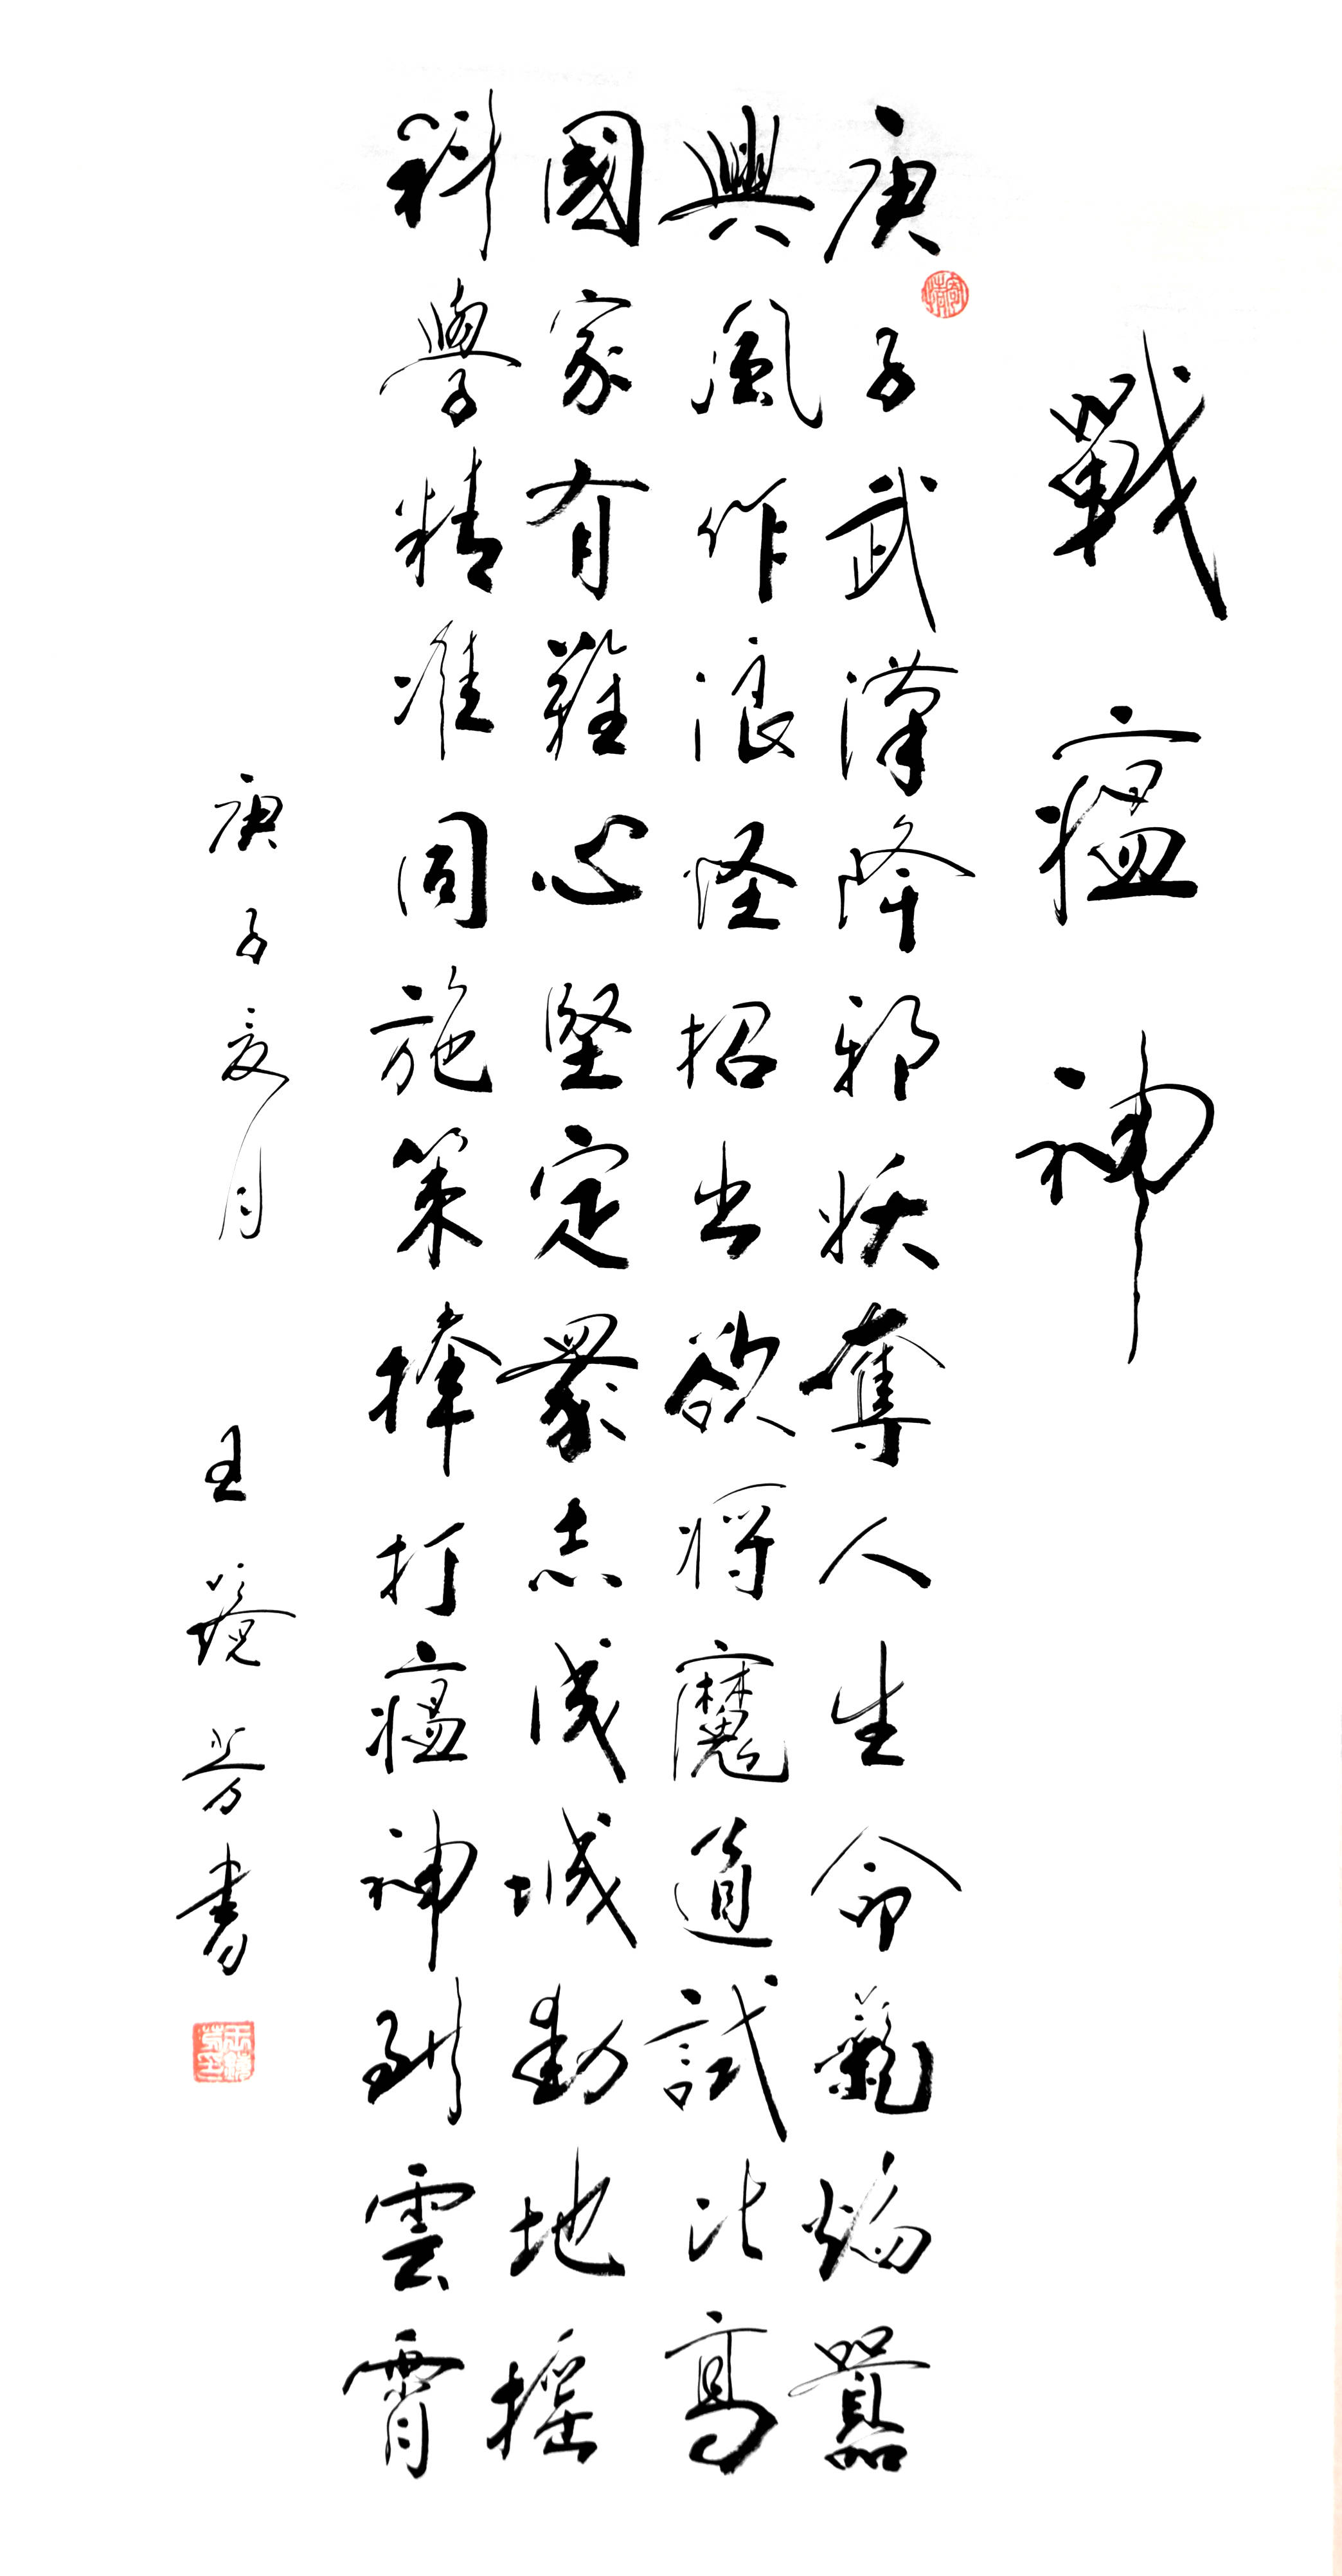 戰瘟神
庚子武漢降邪妖奪人生命氣焰囂
興風作浪怪招出欲將魔道試比高
國家有難心堅定眾志成城動地搖
科學精准同施策捧打瘟神到雲霄
庚子夏月 王 芳書